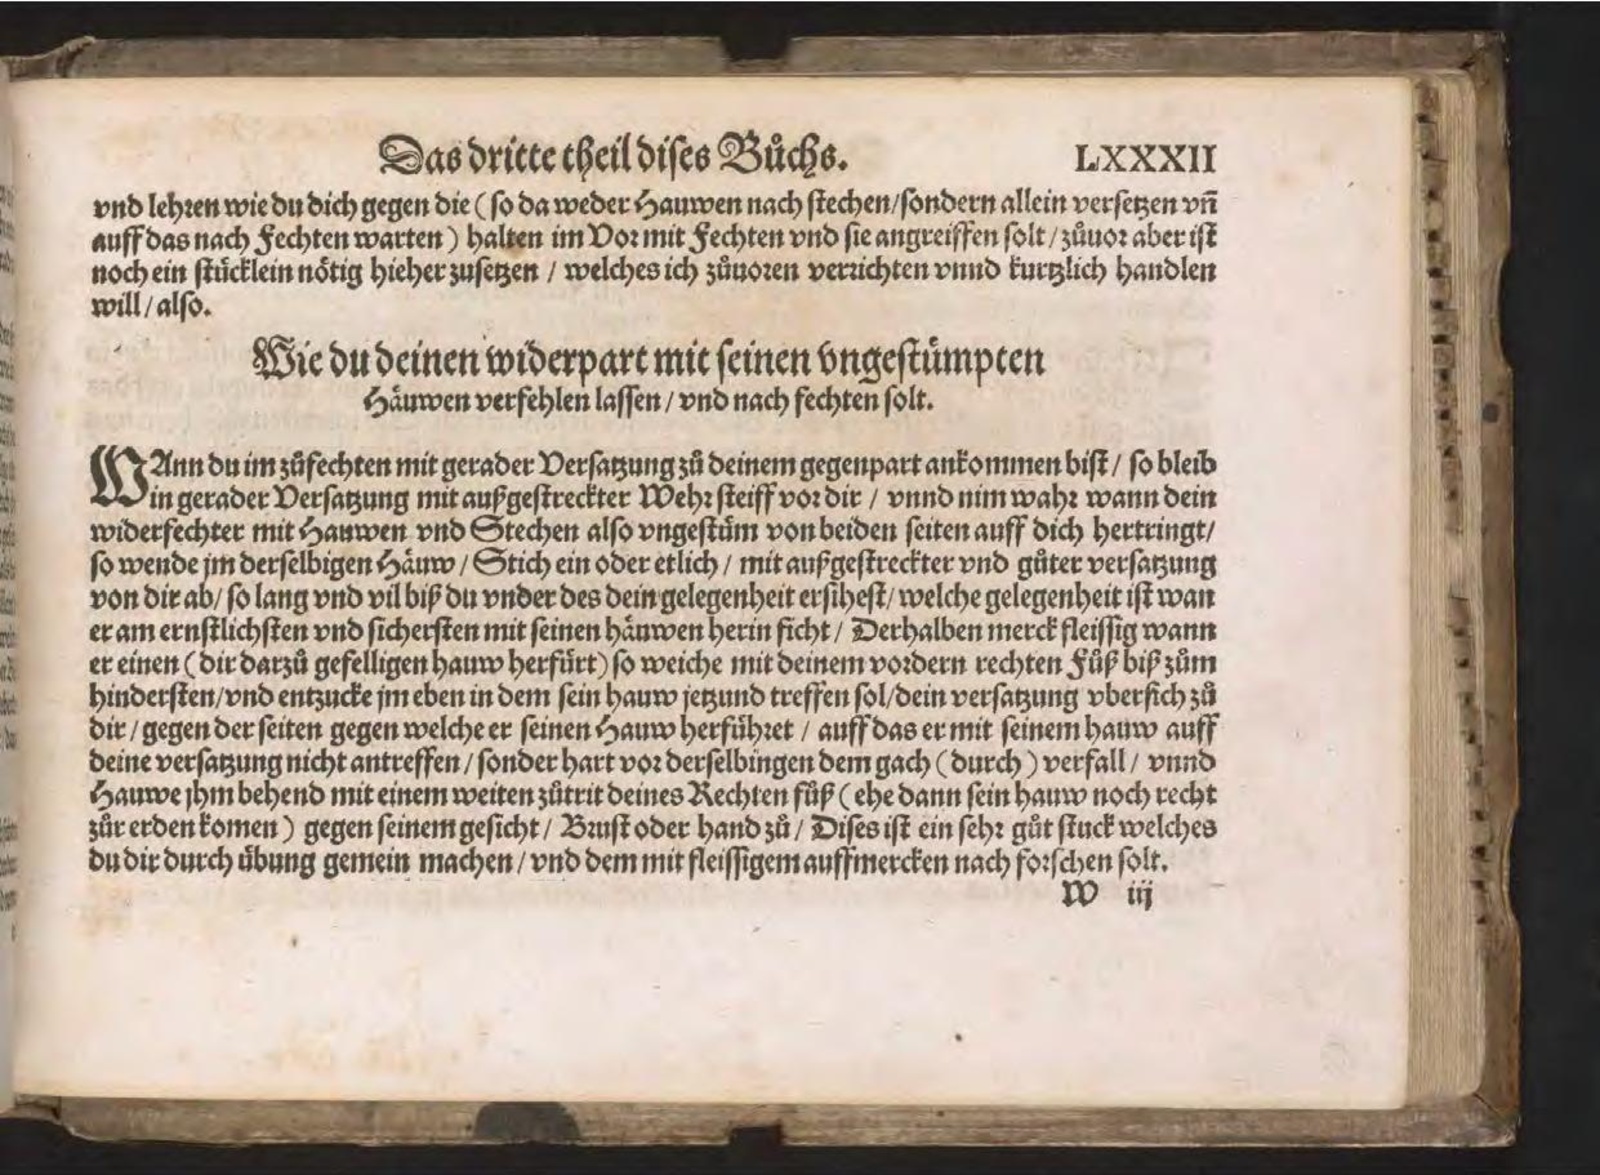 Das dritte theil dises Bůchs. LXXXII
vnd lehren wie du dich gegen die ( so da weder Hauwen nach stechen/sondern allein versetzen vñ
auff das nach Fechten warten ) halten im Vor mit Fechten vnd sie angreiffen solt / zůuor aber ist
noch ein stücklein nötig hieher zusetzen / welches ich zůuoren verrichten vnnd kurtzlich handlen
will / also.
Wie du deinen widerpart mit seinen vngestümpten
Häuwen verfehlen lassen / vnd nach fechten solt.
WAnn du im zůfechten mit gerader Versatzung zů deinem gegenpart ankommen bist / so bleib
in gerader Versatzung mit außgestreckter Wehr steiff vor dir / vnnd nim wahr wann dein
widerfechter mit Hauwen vnd Stechen also vngestüm von beiden seiten auff dich hertringt/
so wende jm derselbigen Häuw / Stich ein oder etlich / mit außgestreckter vnd gůter versatzung
von dir ab/ so lang vnd vil biß du vnder des dein gelegenheit ersihest/ welche gelegenheit ist wan
er am ernstlichsten vnd sichersten mit seinen häuwen herin ficht / Derhalben merck fleissig wann
er einen ( dir darzů gefelligen hauw herfürt) so weiche mit deinem vordern rechten Fůß biß zům
hindersten/vnd entzucke jm eben in dem sein hauw jetzund treffen sol/dein versatzung vbersich zů
dir / gegen der seiten gegen welche er seinen Hauw herführet / auff das er mit seinem hauw auff
deine versatzung nicht antreffen / sonder hart vor derselbingen dem gach ( durch ) verfall / vnnd
Hauwe jhm behend mit einem weiten zůtrit deines Rechten fůß ( ehe dann sein hauw noch recht
zůr erden komen ) gegen seinem gesicht / Brust oder hand zů / Dises ist ein sehr gůt stuck welches
du dir durch übung gemein machen / vnd dem mit fleissigem auffmercken nach forschen solt.
W iij